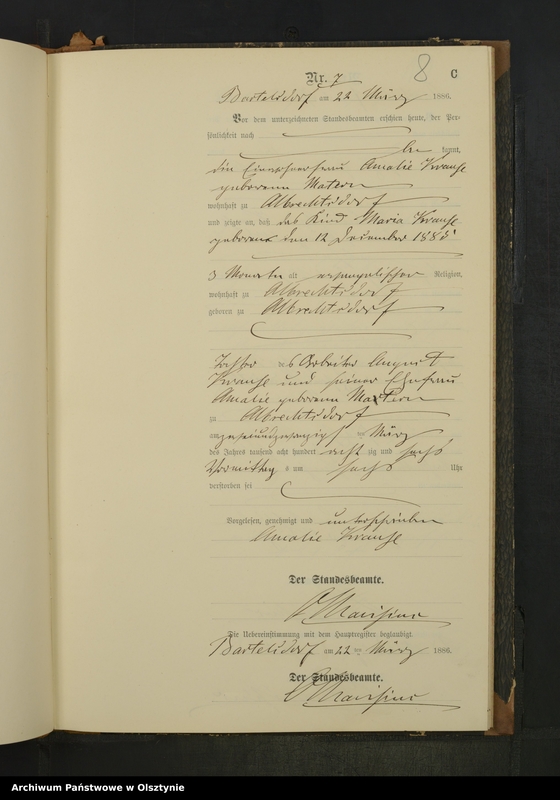 8
C
Nr. 7
Bartelsdorf am 22 März 1886.
Vor dem unterzeichneten Standesbeamten erschien heute, der Per-
sönlichkeit nach
be kannt,
die Einwohnerfrau Amalie Krause
geborene Matern
wohnhaft zu Albrechtsdorf
und zeigte an, daß das Kind Maria Krause
geboren den 12 December 1885
3 Monate alt evangelischer Religion,
wohnhaft zu Albrechtsdorf
geboren zu Albrechtsdorf
Tochter des Arbeiter August
Krause und seiner Ehefrau
Amalie geborene Matern
zu Albrechtsdorf
am zweiundzwanzigst en März
des Jahres tausend acht hundert acht zig und sechs
Vormittag s um sechs Uhr
verstorben sei
Vorgelesen, genehmigt und unterschrieben
Amalie Krause
Der Standesbeamte.
Die Uebereinstimmung mit dem Hauptregister beglaubigt.
Bartelsdorf am 22 ten März 1886.
Der Standesbeamte.
Archiwum Państwowe w Olsztynie